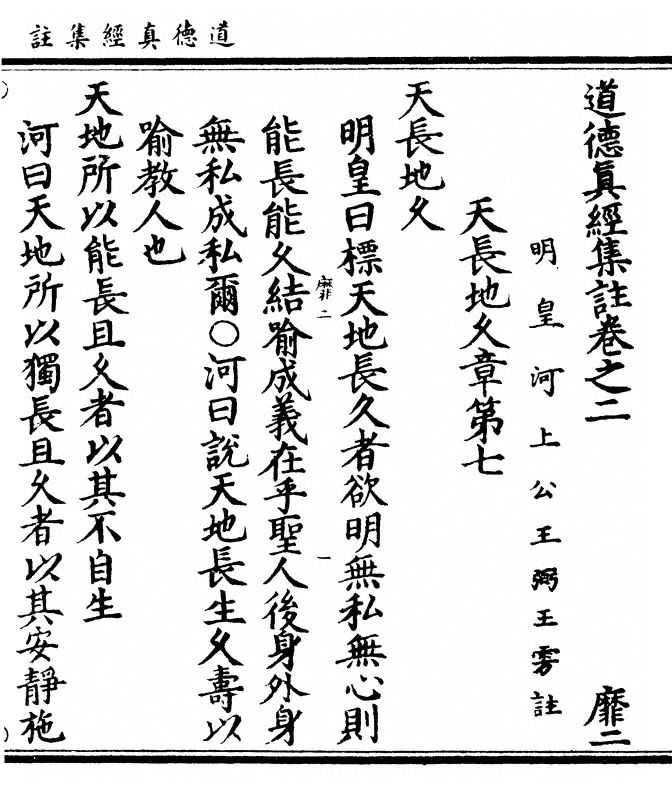 道德真經集註
道德眞經集註卷之二 靡二
明皇河上公王弼王雱註
天長地久章第七
天長地久
明皇曰標天地長久者欲明無私無心則
靡二 一
能長能久結喻成義在乎聖人後身外身
無私成私爾〇河曰說天地長生久壽以
喻教人也
天地所以能長且久者以其不自生
河曰天地所以獨長且久者以其安靜施